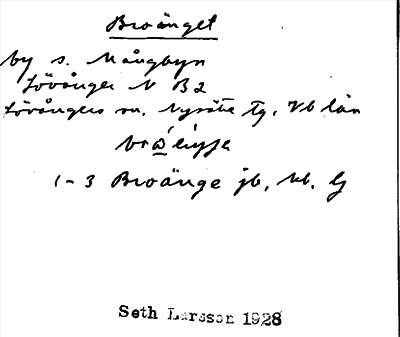 Broänget
by s. Mångbyn
Lövånger N B2
Lövångers sn. Nysätra tg, Vb län
1-3 Broänge jb, kb. G
Seth Larsson 1928